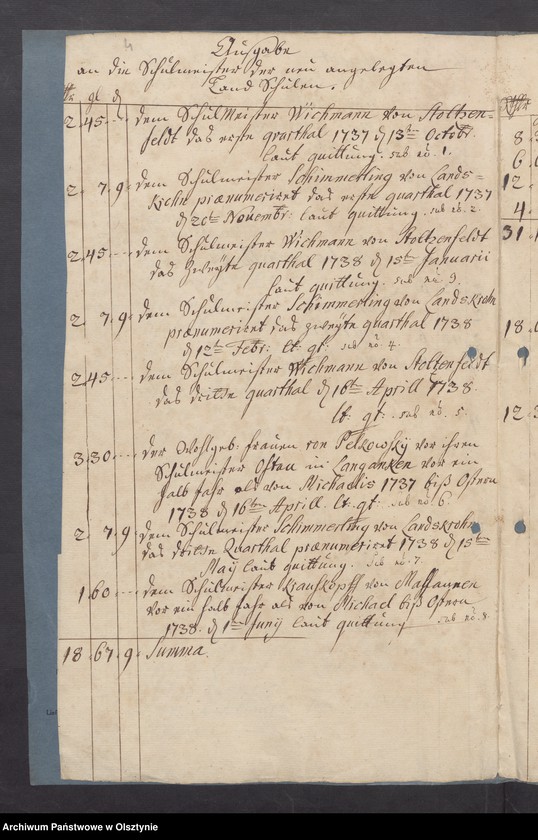 4
Ausgabe
an die Schulmeister der neu angelegten
Land Schulen.
gl
2. 45. - dem SchulMeister Wichmann von Stoltzen-
feldt das erste quarthal 1737 d 13ten Octobr.
laut quittung. sub no. 1.
2. 7. 9. dem Schulmeister Schimmerling von Lands-
krohn prænumeriret das erste quarthal 1737
d 20ten Novembr: laut quittung. sub no. 2.
2. 45. - dem Schulmeister Wichmann von Stoltzenfeldt
das Zweyte quarthal 1738 d 15ten Januarii
laut quittung. sub no. 3.
2. 7. 9. dem Schulmeister Schimmerling von Landskrohn
prænumeriret das zweyte quarthal 1738
d 12ten Febr: lt. qt: sub no. 4.
2. 45. - dem Schulmeister Wichmann von Stoltzenfeldt
das dritte quarthal d 16ten Aprill 1738.
lt: qt: sub no. 5.
3. 30. - der Wohlgeb: frauen von Pelkowsky vor ihren
Schulmeister Osten in Langanken vor ein
halb Jahr als von Michaelis 1737 biß Ostern
1738 d 16ten Aprill. lt. qt: sub no. 6.
2. 7. 9. dem Schulmeister Schimmerling von Landskrohn
das dritte Quarthal prænumeriret 1738 d 15ten
May laut quittung. sub no. 7.
1. 60. - dem Schulmeister Krauskopff von Massaunen
vor ein halb Jahr als von Michael biß Ostern
1738. d 1ten Juny laut quittung sub no. 8.
18. 67. 9. Summa.
8
6.
12
4.
31.
18.
12.
Archiwum Państwowe w Olsztynie